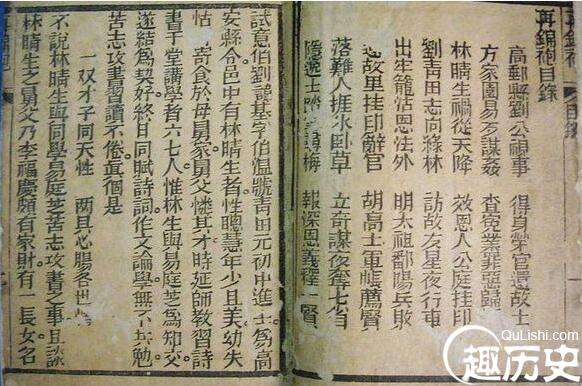 再錦袍目錄
再錦袍目錄
高郵縣劉公視事 得 官還故土
方家園易歹謀姦 查寃業罪惡歸
林晴生禍從天降 效恩人公庭挂印
劉青田志向綠林 訪故友星夜行車
出牢籠沾恩法外 明太祖鄱陽兵敗
返故里挂印辭官 胡高士軍帳薦賢
落難人捱水臥草 立奇謀夜奪七省
隱逸士踏 尋梅 報深恩義釋一賢
試意伯劉諱基字伯温號青田元初中進士爲高
安縣令邑中有林晴生者性聰慧年少且美幼失
怙 寄食於母舅家舅父憐其才時延師教習詩
書于堂講學者六七人惟林生與易庭芝爲知交
遂結爲契好終日同賦詩詞作文論學無不共勉
苦志攻書習讀不倦真個是
一双才子同天性 兩具心腸各世
不說林晴生與同學易庭芝苦志攻書之事且談
林晴生之舅父乃李福慶頗有家財有一長女名
QuLishi.com
趣历史